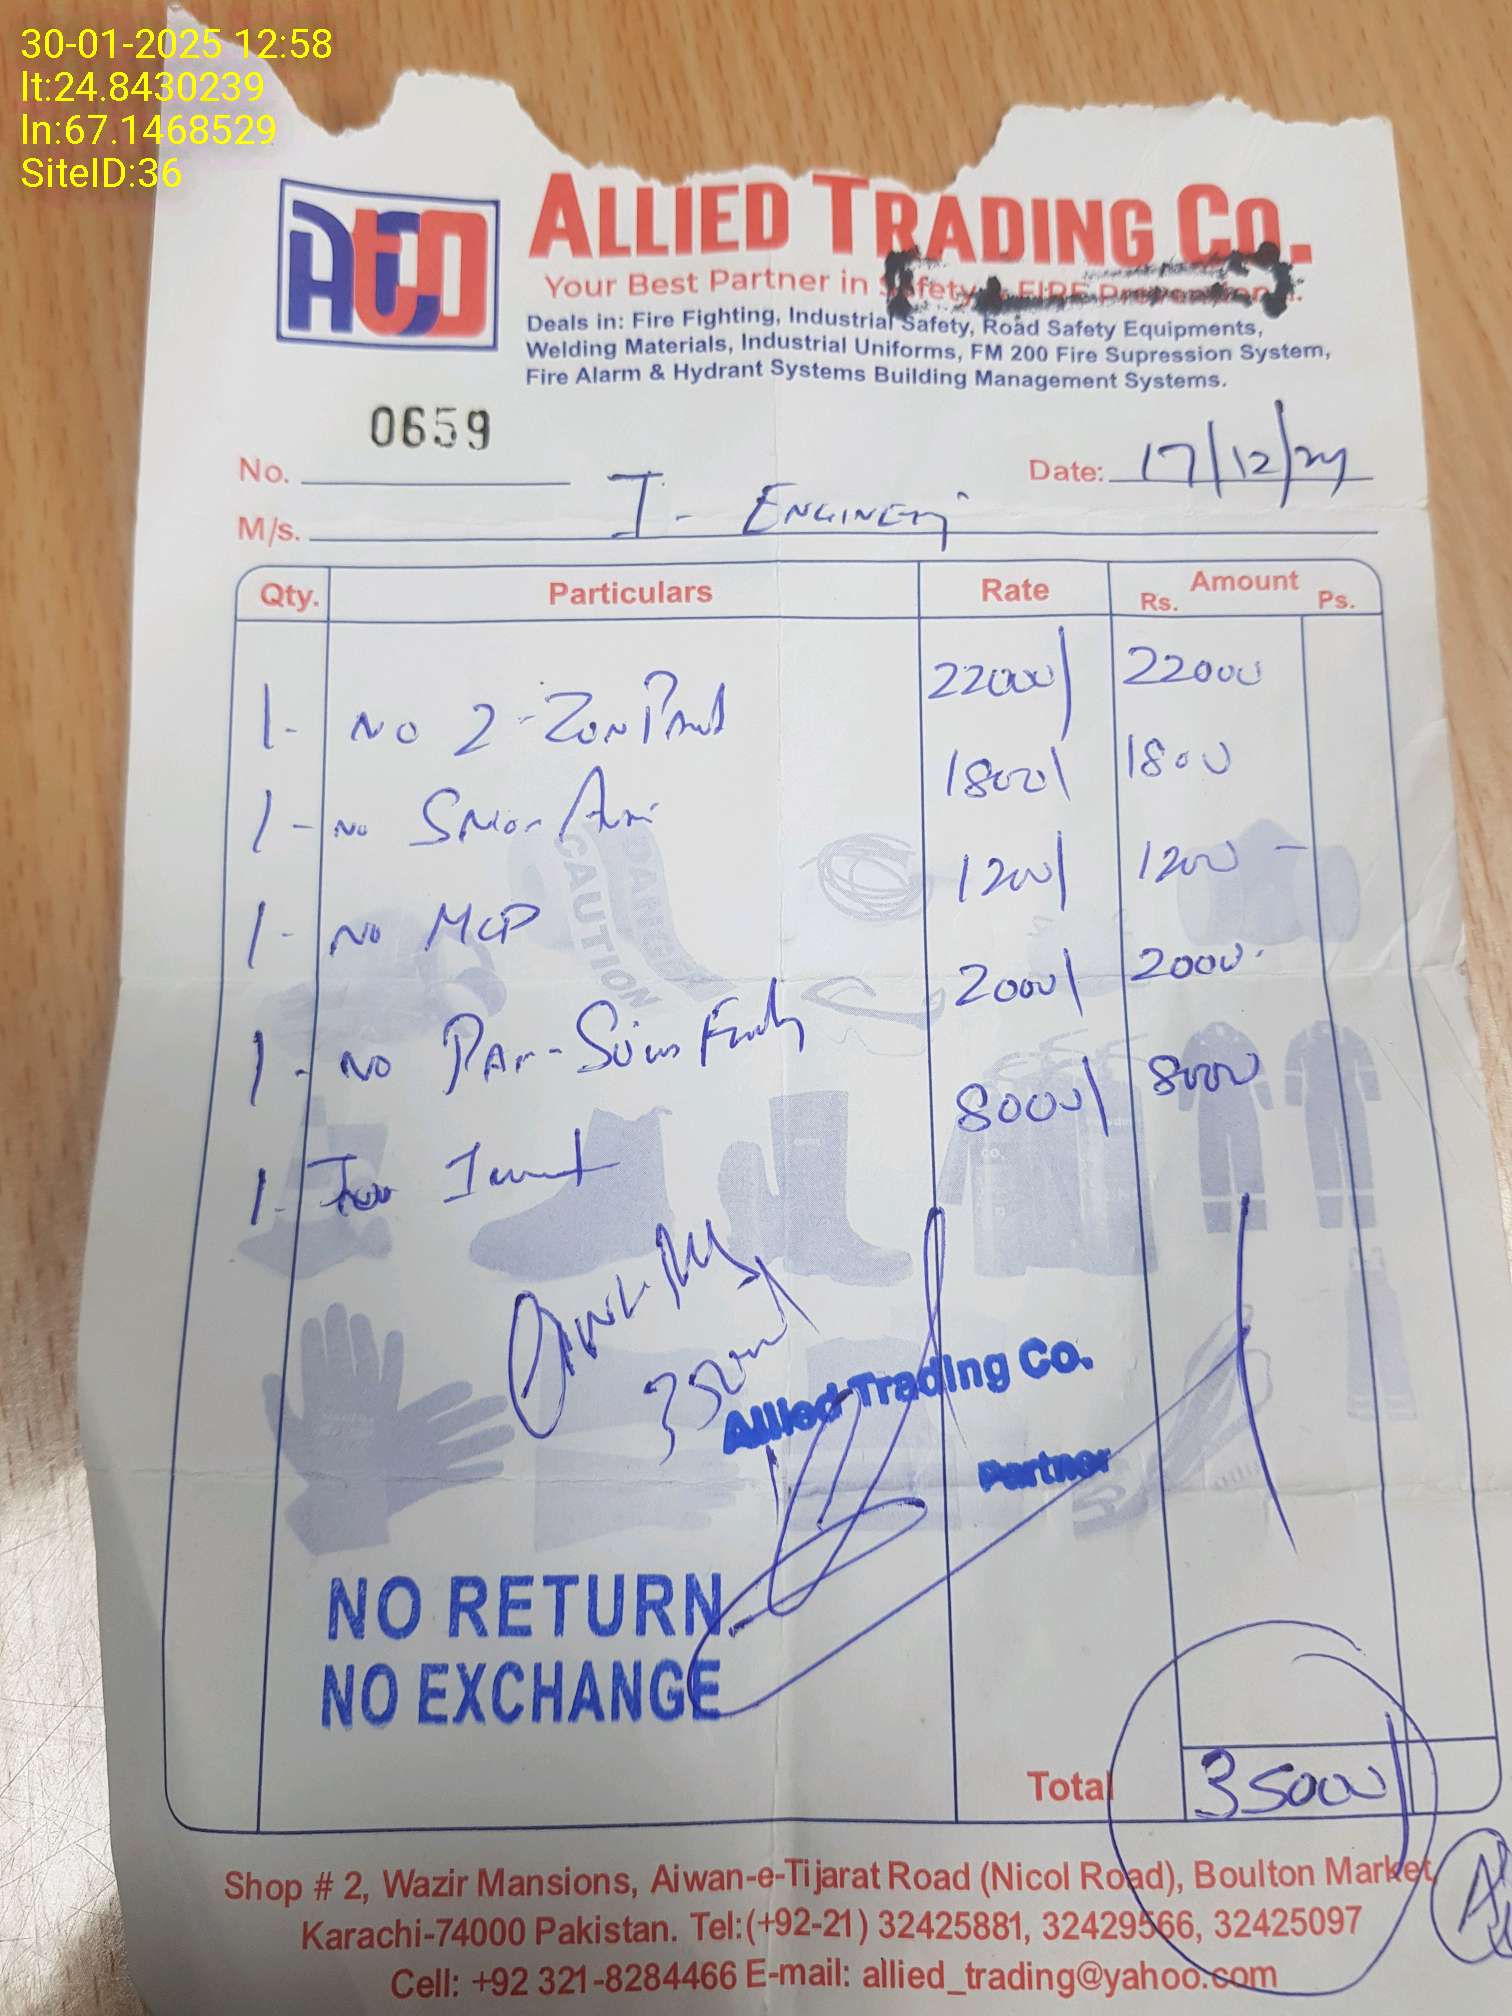 30-01-2025 12:58
lt:24.8430239
ln:67.1468529
SiteID:36
ATCO
ALLIED TRADING CO.
Your Best Partner in Safety FIRE Prevention
Deals in: Fire Fighting, Industrial Safety, Road Safety Equipments,
Welding Materials, Industrial Uniforms, FM 200 Fire Supression System,
Fire Alarm & Hydrant Systems Building Management Systems.
0659
No. Date: 17/12/24
M/s. I - ENGINEER
Qty. Particulars Rate Amount Rs. Ps.
1- NO 2-Zon 22000/ 22000
1- NO 1800/ 1800
1- NO MCP 1200/ 1200 -
1- NO 2000/ 2000
1- 8000/ 8000
CAUTION
35000/
Allied Trading Co.
Partner
NO RETURN
NO EXCHANGE
Total 35000/
Shop # 2, Wazir Mansions, Aiwan-e-Tijarat Road (Nicol Road), Boulton Market,
Karachi-74000 Pakistan. Tel:(+92-21) 32425881, 32429566, 32425097
Cell: +92 321-8284466 E-mail: allied_trading@yahoo.com